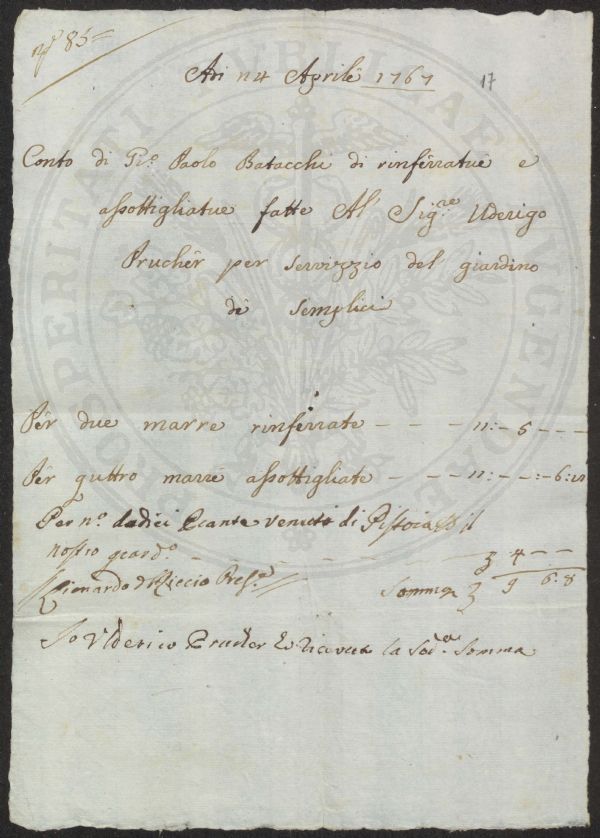 nº 85=
Adi n4 Aprile 1767
17
Conto di Piº. Paolo Batacchi di rinferratue e
assottigliatue fatte Al' Sigre. Uderigo
Prucher per servizzio del giardino
de Semplici
Per due marre rinferrate - - - 11:- 5 - - -
Per quttro marre assottigliate - - - 11: - - :- 6:
Per nº. dodici Piante venute di Pistoia
nostro giardº - - - - - 4 - -
Lionardo Riccio Presº.
Somma 9 6:8
Io Vlderico Prucher ho ricevuta la Sodª. Somma
PROSPERITATI PVBLICAE AVGENDAE